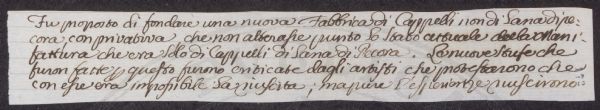 Fu proposto di fondare una nuova Fabbrica di Cappelli non di Lana di pe-
cora con privativa che non alterasse punto lo Stato attuale della Mani-
fattura che era solo di Cappelli di Lana di Pecora. Le nuove Stufe che
furon fatte questo furono criticate dagli artisti che protestarono che
con esse era impossibile la riuscita; mapure l'esperienze riuscirono